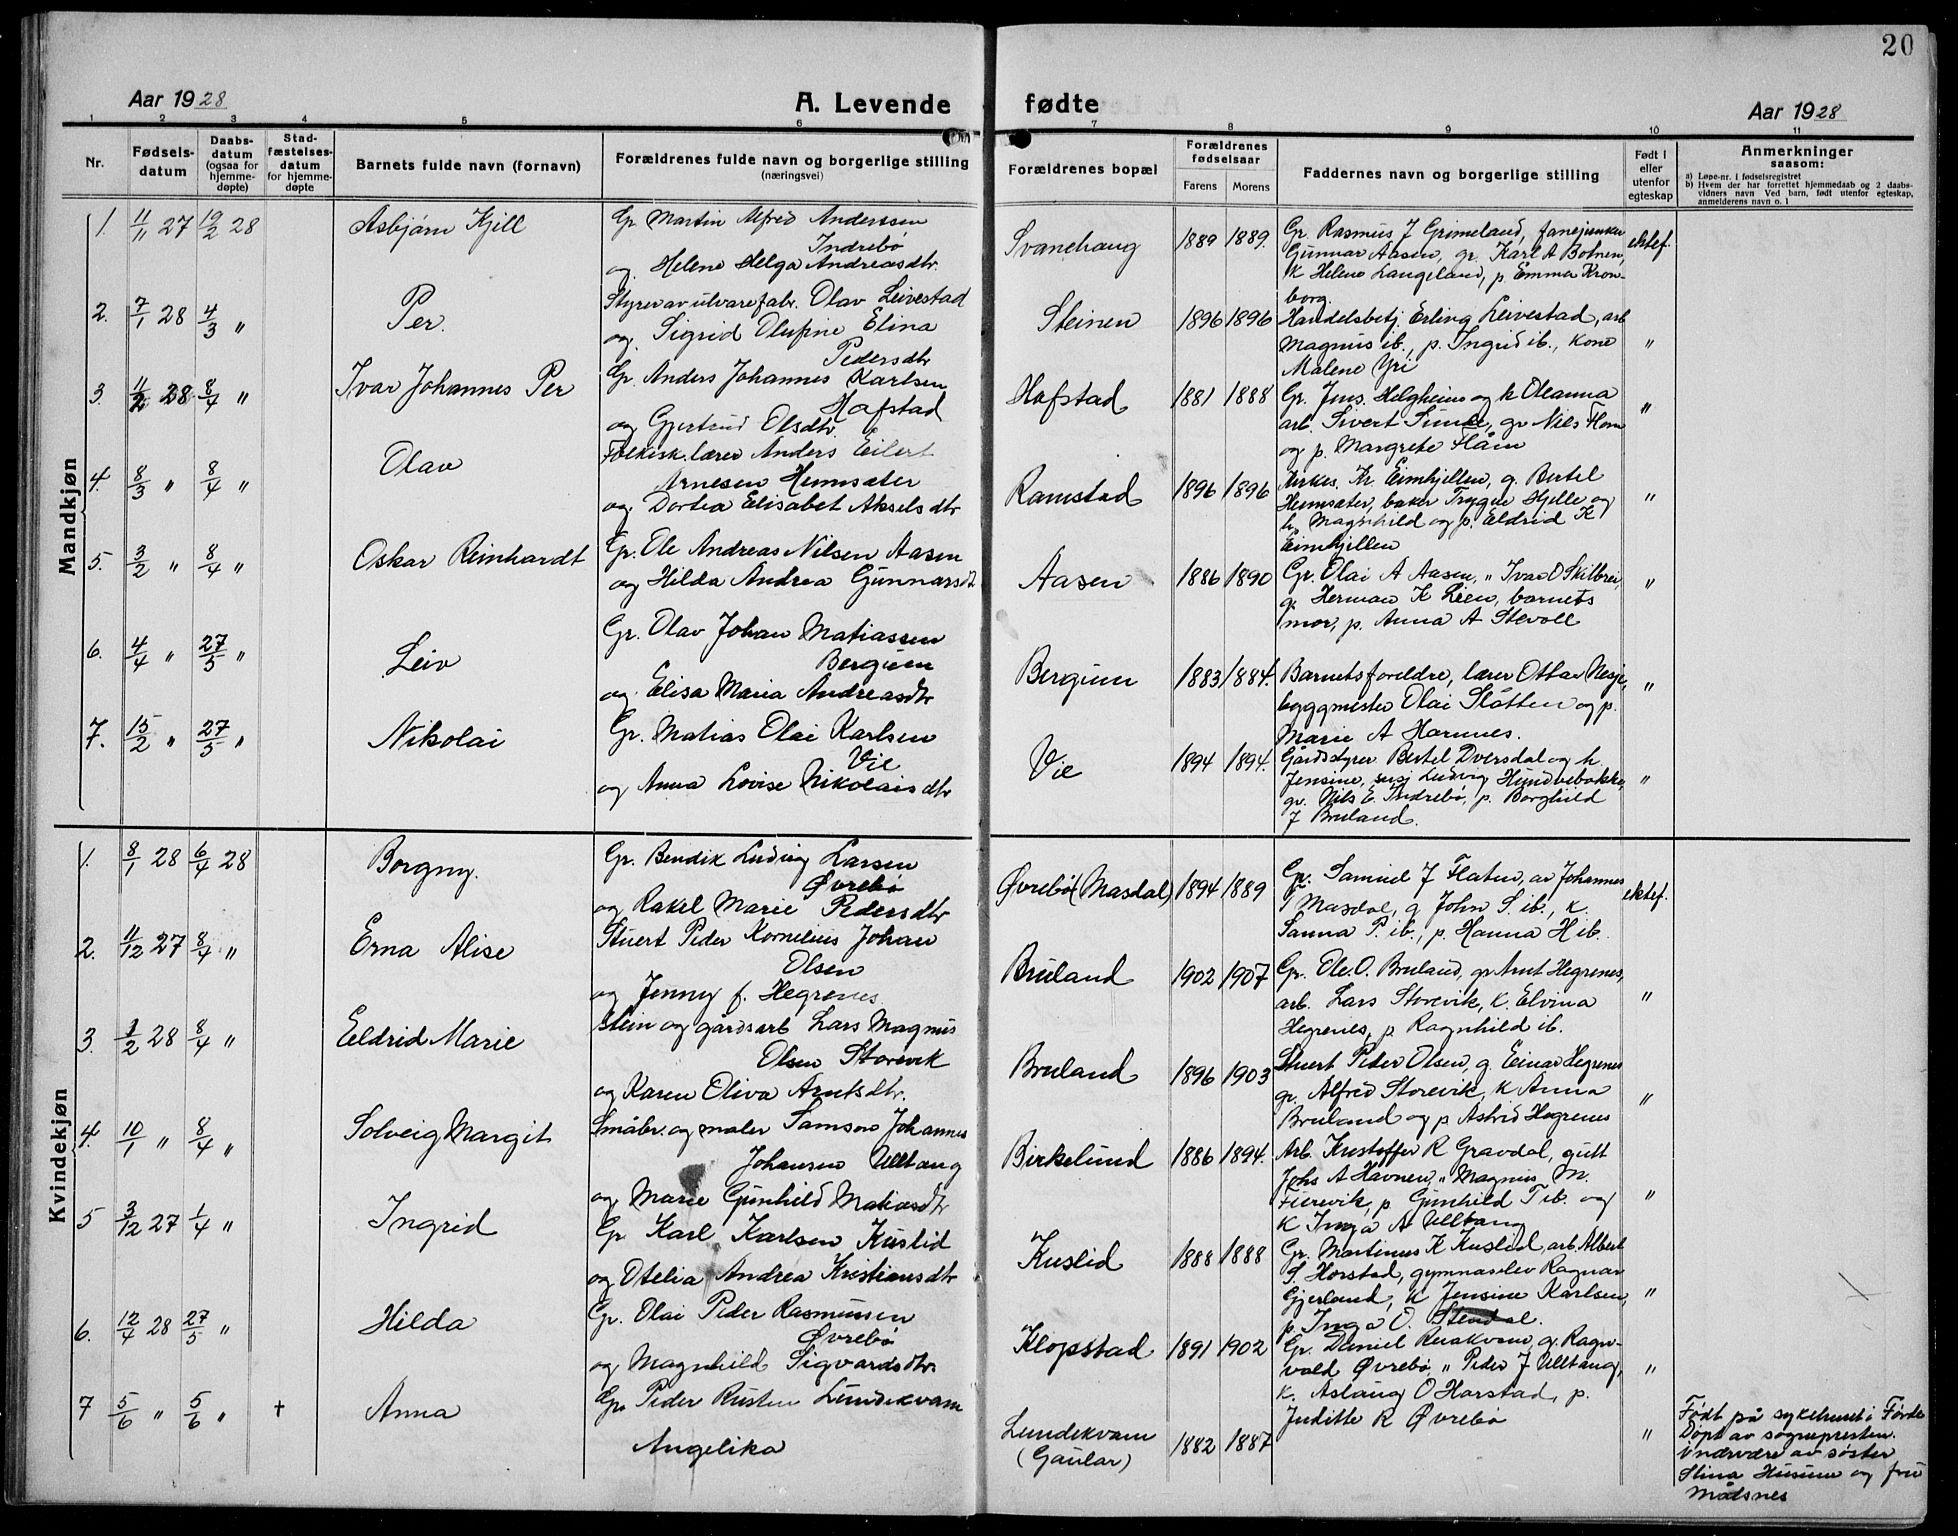 20
Aar 1928
A. Levende fødte
Aar 1928
1 2 3 4 5 6 7 8 9 10 11
Nr.
Fødsels-
datum
Daabs-
datum
(ogsaa for
hjemme-
døpte)
Stad-
fæstelses-
datum
for hjemme-
døpte
Barnets fulde navn (fornavn)
Forældrenes fulde navn og borgerlige stilling
(næringsvei)
Forældrenes bopæl
Forældrenes
fødselsaar
Farens Morens
Faddernes navn og borgerlige stilling
Født i
eller
utenfor
egteskap
Anmerkninger
saasom:
a) Løpe-nr. i fødselsregistret
b) Hvem der har forrettet hjemmedaab og 2 daabs-
vidners navn Ved barn, født utenfor egteskap,
anmelderens navn o. l
Mandkjøn
1. 11/11 27 19/2 28 Asbjørn Kjell
Gr. Martin Alfred Anderssen
Indrebø
og Helene Helga Andreasdtr.
Svanehaug 1889 1889.
Gr. Rasmus J Grimeland, fanejunker
Gunnar Aasen, gr. Karl A Botnen,
K Helene Langeland, p. Emma Kron-
borg.
ektef.
2. 7/1 28 4/3 " Per.
Styrer av ulvarefabr. Olav Leivestad
og Sigrid Olufine Elina
Pedersdtr
Steinen 1896 1896
Handelsbetj. Erling Leivestad, arb
Magnus ib., p. Ingrid ib., Kone
Malene Yri
"
3. 11/2 28 8/4 " Ivar Johannes Per
Gr. Anders Johannes Karlsen
Hafstad
og Gjertrud Olsdtr.
Hafstad 1881 1888
Gr. Jens. Helgheim og k Oleanna
arb. Sivert Sunde, gr Nils Horn
og p. Margrete Flåm
"
4. 8/3 " 8/4 " Olav
Folkesk. lærer Anders Eilert
Arnesen Hemsæter
og Dortea Elisabet Aksels dtr
Ramstad 1896 1896
Kirkes. Kr. Eimhjellen, g. Bertel
Hemsæter, baker Trygve Hjelle og
h. Magnhild og p. Eldrid K
Eimhjellen
"
5. 3/2 " 8/4 " Oskar Reinhardt
Gr. Ole Andreas Nilsen Aasen
og Hilda Andrea Gunnarsdt
Aasen 1886 1890
Gr. Olai A Aasen, " Ivar O Skilbrei,
g. Herman K Lien, barnets
mor, p. Anna A Stevoll
"
6. 4/4 " 27/5 " Leiv
Gr. Olav Johan Matiassen
Bergum
og Elisa Maria Andreasdtr
Bergum 1883 1884.
Barnets foreldre, lærer Ottar Nesje,
byggmester Olai Slåtten og p.
Marie A Hornnes.
"
7. 15/2 " 27/5 " Nikolai
Gr. Matias Olai Karlsen
Vie
og Anna Lovise Nikolaisdtr
Vie 1894 1894.
Gårdsstyrer Bertel Dversdal og h.
Jensine, sersj Ludvig Hundvebakke,
gr. Nils E. Indrebø, p. Borghild
J Bruland.
"
Kvindekjøn
1. 8/1 28 6/4 28 Borgny.
Gr. Bendik Ludvig Larsen
Øvrebø
og Rakel Marie Pedersdtr
Øvrebø (Masdal) 1894 1889
Gr. Samuel J Flaten, av Johannes
T Masdal, g John S. ib., k.
Sanna P. ib., p. Hanna H ib.
ektef.
2. 11/12 27 8/4 " Erna Alise
Stuert Peder Kornelius Johan
Olsen
og Jenny f. Hegrenes.
Bruland 1902 1907
Gr. Ole. O. Bruland, gr Arnt Hegrenes,
arb. Lars Storevik, K. Elvina
Hegrenes, p Ragnhild ib.
"
3. 1/2 28 8/4 " Eeldrid Marie
Stein og gårdsarb Lars Magnus
Olsen Storevik
og Karen Oliva Arntsdtr.
Bruland 1896 1903
Stuert Peder Olsen, g. Einar Hegrenes
gr. Alfred Storevik, K Anna
Bruland og p Astrid Hegrenes
"
4. 10/1 " 8/4 " Solveig Margit
Småbr. og maler Samson Johannes
Johansen Ulltang
og Marie Gunhild Matiasdtr
Birkelund 1886 1894.
Arb. Kristoffer R Gravdal, gutt
Johs A Havnen, " Magnus M.
p Gunhild T ib. og
K Inga A Ulltang
"
5 3/12 27 1/4 " Ingrid
Gr Karl Karlsen Kuslid
og Otelia Andrea Kristiansdtr
Kuslid 1888 1888
Gr. Martinus K Kuslid, arb. Albert
S. Horstad, gymnaselev Ragnar
Gjerland, K Jensine Karlsen,
p. Inga O. Stendal.
"
6. 12/4 28 27/5 " Hilda
Gr. Olai Peder Rasmussen
Øvrebø
og Magnhild Sigvardsdtr.
Klopstad 1891 1902
Gr. Daniel Ruakvam, g. Ragn-
vald Øvrebø " Peder J Ulltang,
k. Aslaug O Horstad, p.
Juditte R Øvrebø
"
7 5/6 " 5/6 " † Anna
Gr. Peder Rusten Lundekvam
Angelika
Lundekvam
(Gaular)
1882 1887
"
Født på sykehuset i Førde
Døpt av sogneprester.
i nærvære av søster
Stina Husum og fru
Mådsnes